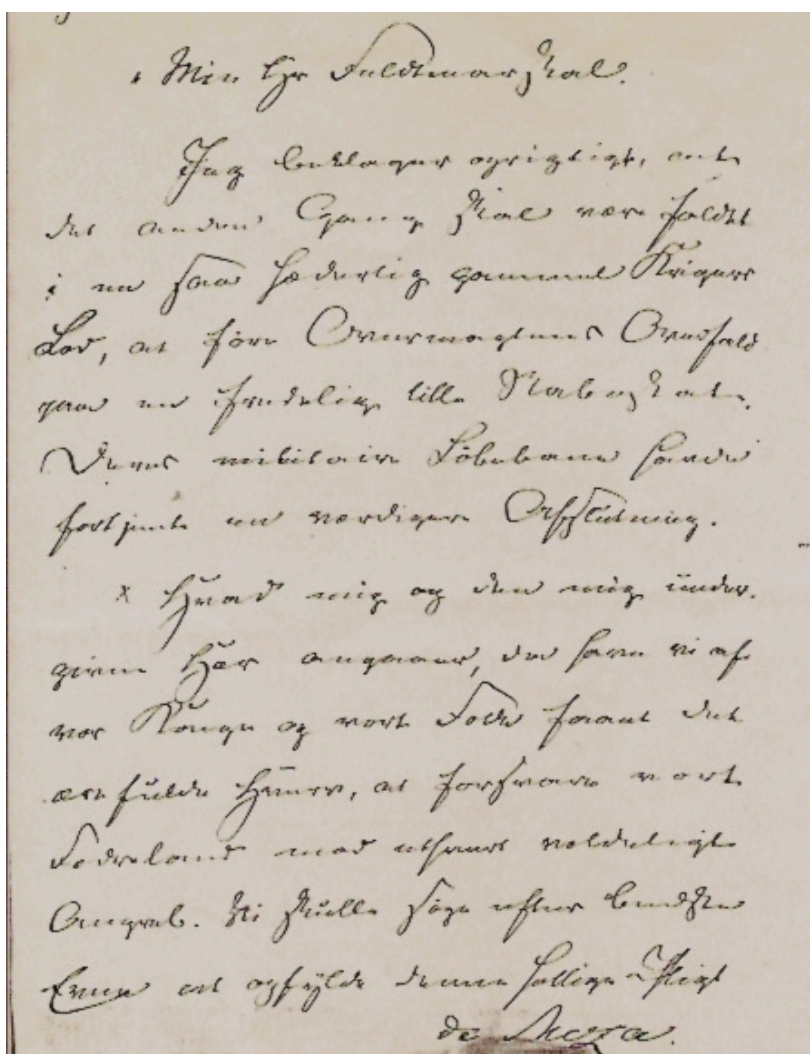 Min Hr Feldtmarskal.
Jeg beklager oprigtigt, at
det anden Gang skal være faldet
i en saa hæderlig gammel Krigers
Lod, at føre Overmagtens Overfald
paa en fredelig lille Nabostat.
Deres militaire Löbebane havde
fortjent en værdigere Afslutning.
x Hvad mig og den mig under-
givne Hær angaaer, da have vi af
vor Konge og vort Folk faaet det
ærefulde Hverv, at forsvare vort
Fædreland mod ethvert voldeligt
Angreb. Vi skulle søge efter bedste
Evne at opfylde denne hellige Pligt
de Meza.